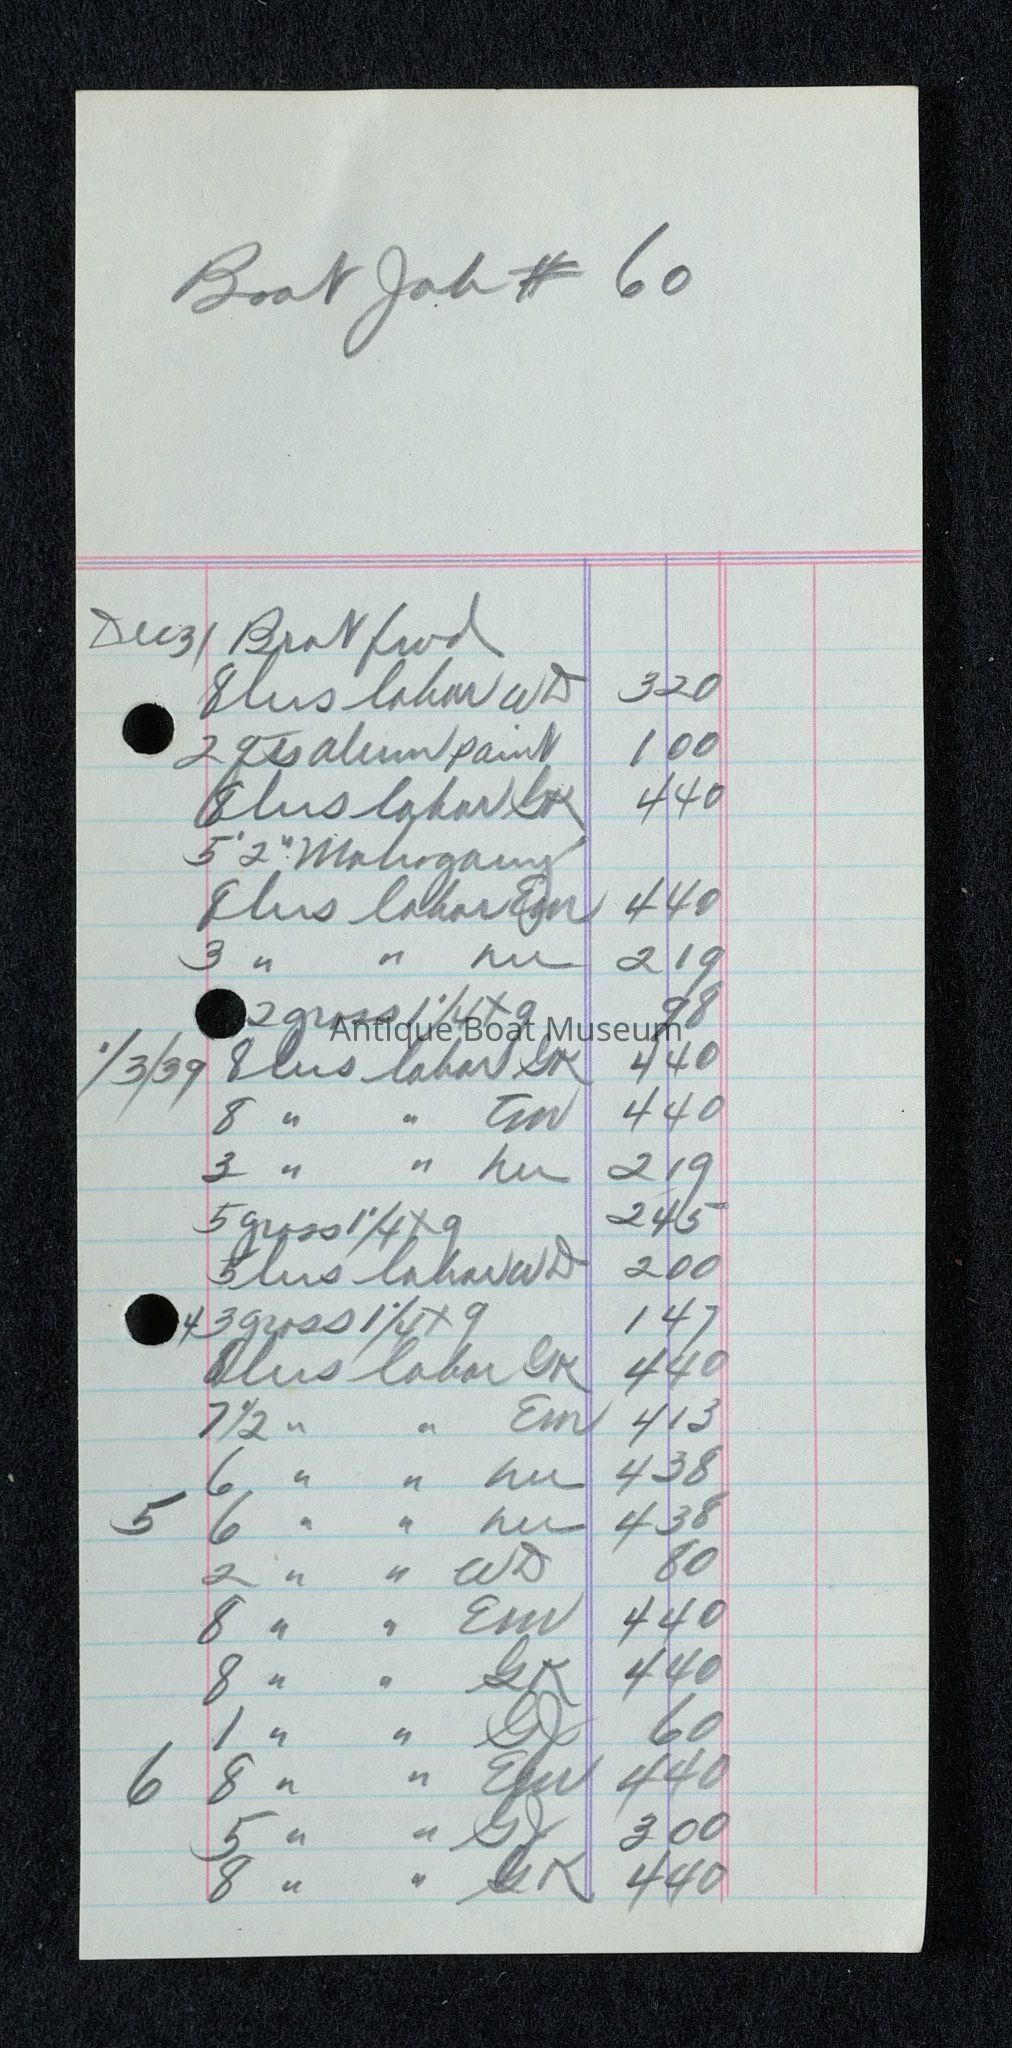 Boat Job # 60
Dec 31 Boat fwd
8 hrs labor WD 320
2 qts alum paint 100
8 hrs labor GK 440
5' 2" Mahogany
8 hrs labor EM 440
3 " " 219
2 gross 1 1/4 x 9 98
Antique Boat Museum
1/3/39 8 hrs labor GK 440
8 " " EM 440
3 " " 219
5 gross 1 1/4 x 9 245
5 hrs labor WD 200
4 3 gross 1 1/4 x 9 147
8 hrs labor GK 440
7 1/2 " " EM 413
6 " " 438
5 6 " " 438
2 " " WD 80
8 " " EM 440
8 " " GK 440
1 " " GJ 60
6 8 " " EM 440
5 " " GJ 300
8 " " GK 440